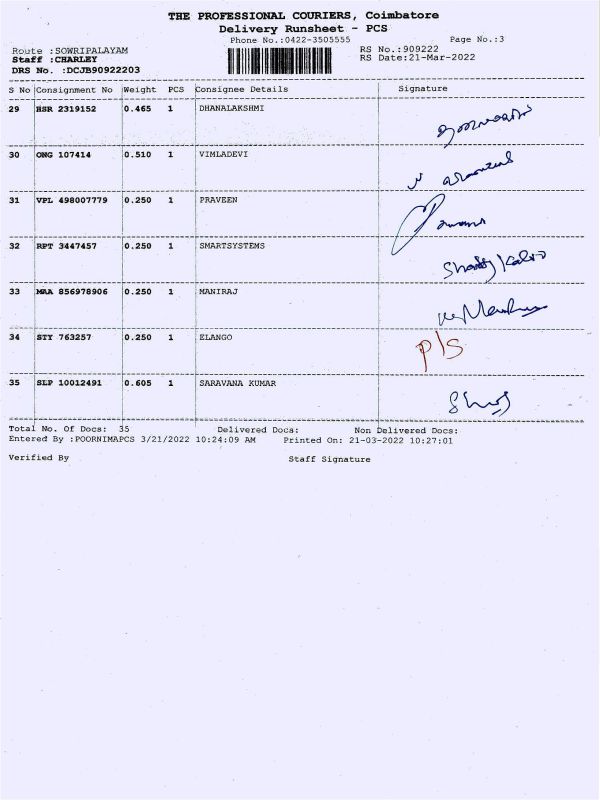 THE PROFESSIONAL COURIERS, Coimbatore
Delivery Runsheet - PCS
Phone No.:0422-3505555 Page No.:3
Route :SOWRIPALAYAM RS No.:909222
Staff :CHARLEY RS Date:21-Mar-2022
DRS No. :DCJB90922203
S No Consignment No Weight PCS Consignee Details Signature
29 HSR 2319152 0.465 1 DHANALAKSHMI
30 ONG 107414 0.510 1 VIMLADEVI
31 VPL 498007779 0.250 1 PRAVEEN
32 RPT 3447457 0.250 1 SMARTSYSTEMS
33 MAA 856978906 0.250 1 MANIRAJ
34 STY 763257 0.250 1 ELANGO P/S
35 SLP 10012491 0.605 1 SARAVANA KUMAR
Total No. Of Docs: 35 Delivered Docs: Non Delivered Docs:
Entered By :POORNIMAPCS 3/21/2022 10:24:09 AM Printed On: 21-03-2022 10:27:01
Verified By Staff Signature